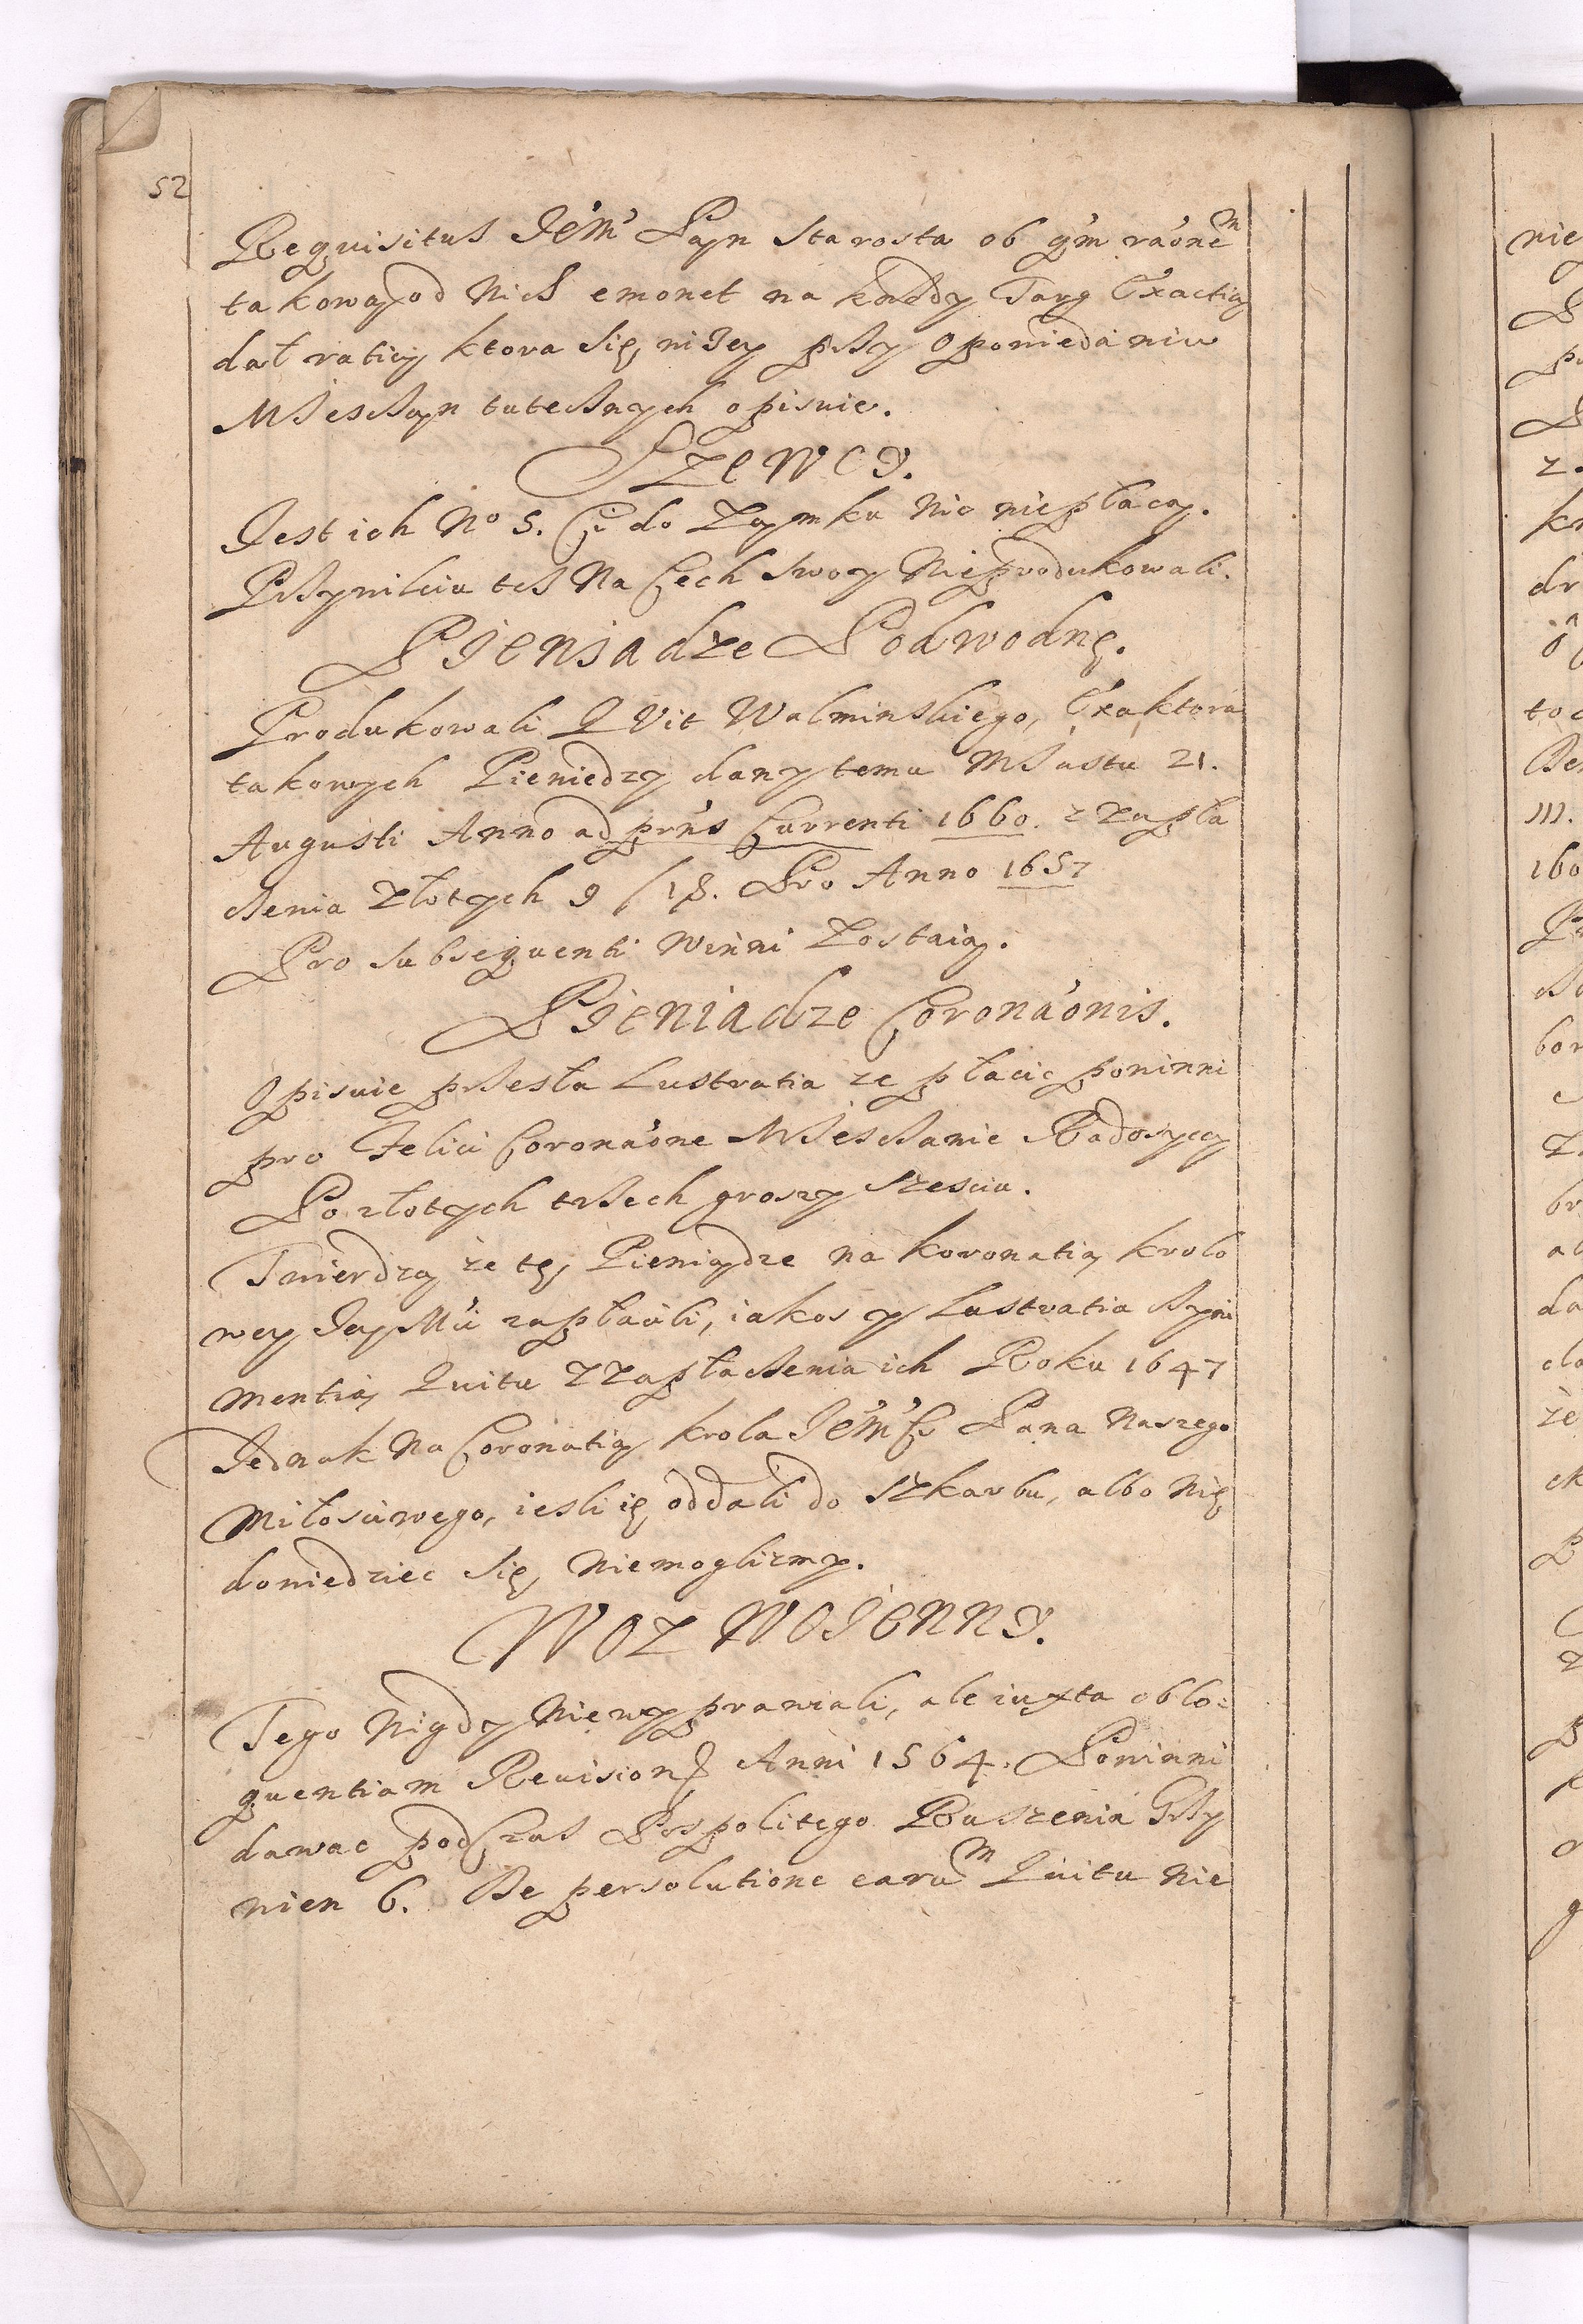 52
Requisitus Jem' Pan Starosta ob q'm ra'one͂m
takową od nich emonet na kozdy Targ Exactią
dał ratią ktora się niżey przy opowiedaniu
Mieszczan tutecznych opisuie.
Szewcy.
Jest ich No 5. Ci do Zamku nic niepłacą.
Przywileiu tesz na Cech swoy nieprodukowali.
Pieniadze Podwodnę.
Produkowali Qvit Walminskiego, Exaktora
takowych Pieniedzy dany temu Miastu 21.
Augusti Anno ad prn's Currenti 1660. z Zapła
czenia Złotych 9 / 18. Pro Anno 1657
Pro subsequenti winni Zostaią.
Pieniadze Corona'onis.
Opisuie przeszła Lustratia ze płacic powinni
pro Felici Corona'one Mieszczanie Radoszyccy
Po złotych trzech groszy szesciu.
Twierdzą że tę Pieniądze na koronatią krolo
wey Jey M'ci zapłacili, iakos y Lustratia czyni
mentią Quitu z Zapłaczenia ich Roku 1647
Jednak na Coronatią krola Jem'Ci Pana naszego
Miłosciwego, iesli ię oddali do szkarbu, albo nię
dowiedziec się niemoglizmy.
Woz Woienny.
Tego nigdy niewyprawiali, ale iuxta oblo:
quentiam Reuisionis Anni 1564. Powinni
dawac podczas Pospolitego Ruszenia Grzy
wien 6. De persolutione earum Quitu nie